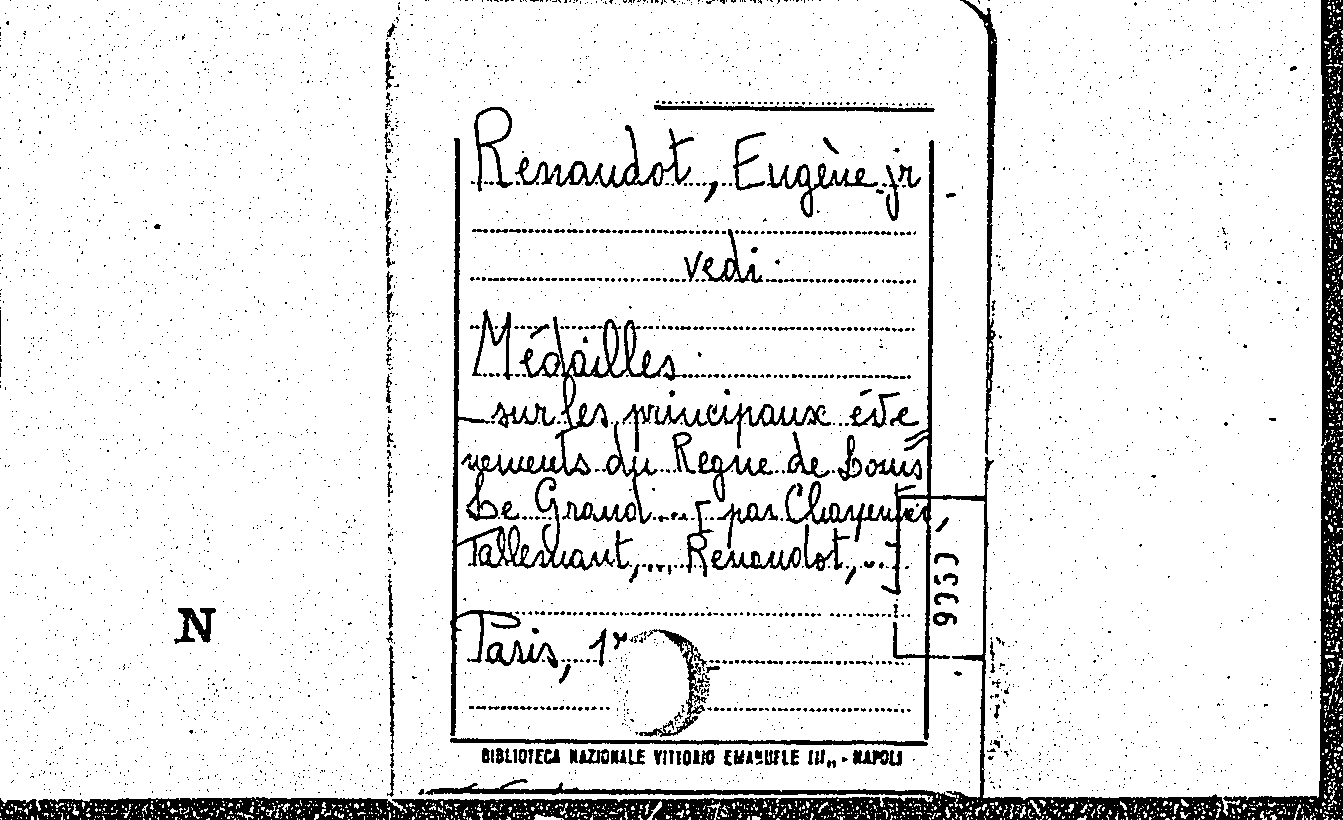 Renaudot, Eugène jr
vedi
Médailles
sur les principaux éve
nements du Regne de Louis
Le Grand... [par Charpentier,
Tallemant,... Renaudot,...]
Paris, 1
N
BIBLIOTECA NAZIONALE VITTORIO EMANUELE III„ - NAPOLI